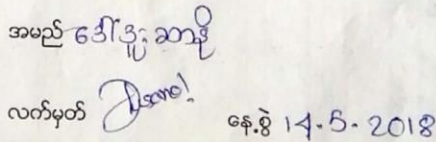 အမည် ဒေါ်ဒူးဆာနို
လက်မှတ်
နေ့စွဲ 14-5-2018